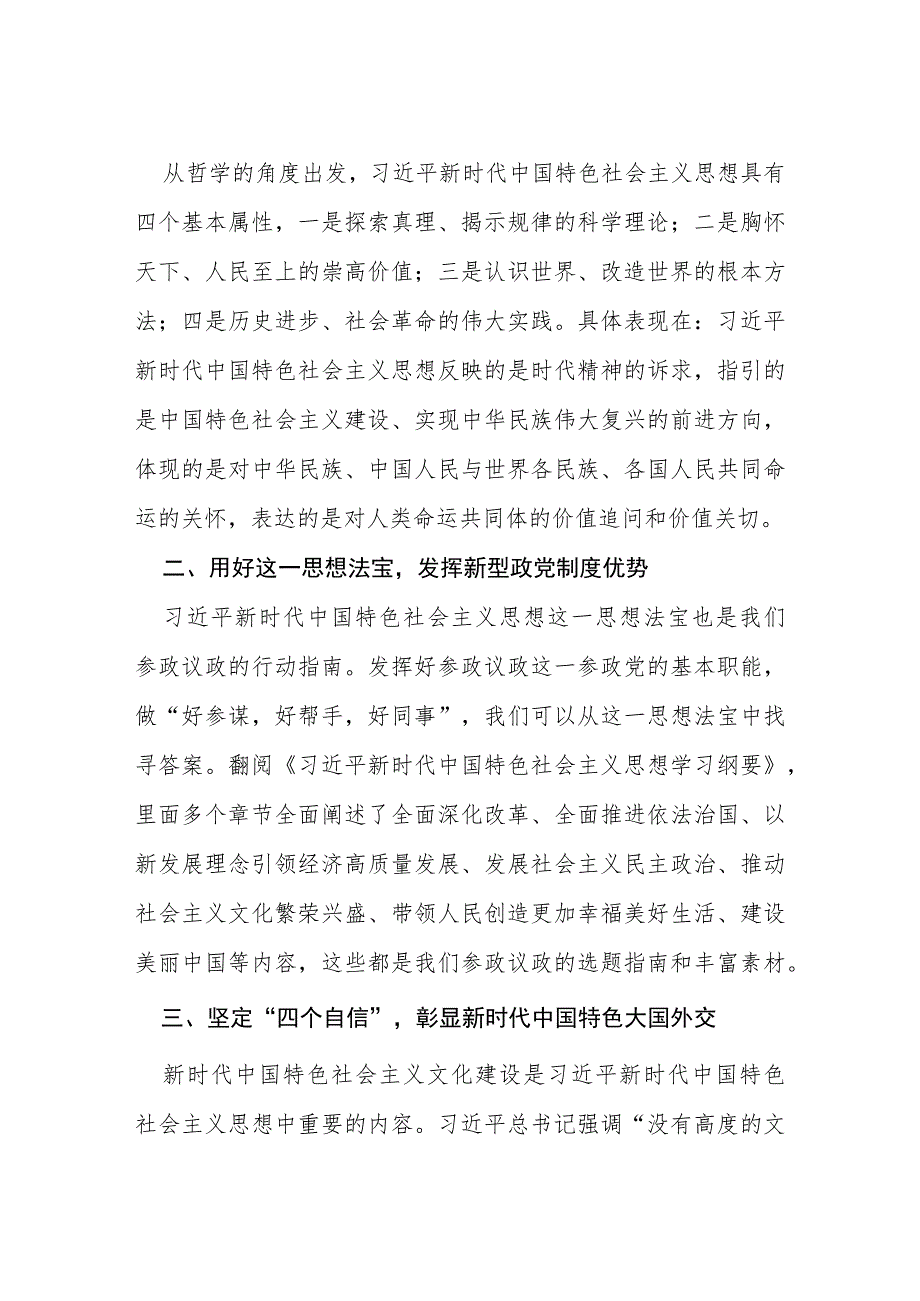 从哲学的角度出发，习近平新时代中国特色社会主义思想具有
四个基本属性，一是探索真理、揭示规律的科学理论；二是胸怀
天下、人民至上的崇高价值；三是认识世界、改造世界的根本方
法；四是历史进步、社会革命的伟大实践。具体表现在：习近平
新时代中国特色社会主义思想反映的是时代精神的诉求，指引的
是中国特色社会主义建设、实现中华民族伟大复兴的前进方向，
体现的是对中华民族、中国人民与世界各民族、各国人民共同命
运的关怀，表达的是对人类命运共同体的价值追问和价值关切。
二、用好这一思想法宝，发挥新型政党制度优势
习近平新时代中国特色社会主义思想这一思想法宝也是我们
参政议政的行动指南。发挥好参政议政这一参政党的基本职能，
做“好参谋，好帮手，好同事”，我们可以从这一思想法宝中找
寻答案。翻阅《习近平新时代中国特色社会主义思想学习纲要》，
里面多个章节全面阐述了全面深化改革、全面推进依法治国、以
新发展理念引领经济高质量发展、发展社会主义民主政治、推动
社会主义文化繁荣兴盛、带领人民创造更加幸福美好生活、建设
美丽中国等内容，这些都是我们参政议政的选题指南和丰富素材。
三、坚定“四个自信”，彰显新时代中国特色大国外交
新时代中国特色社会主义文化建设是习近平新时代中国特色
社会主义思想中重要的内容。习近平总书记强调“没有高度的文